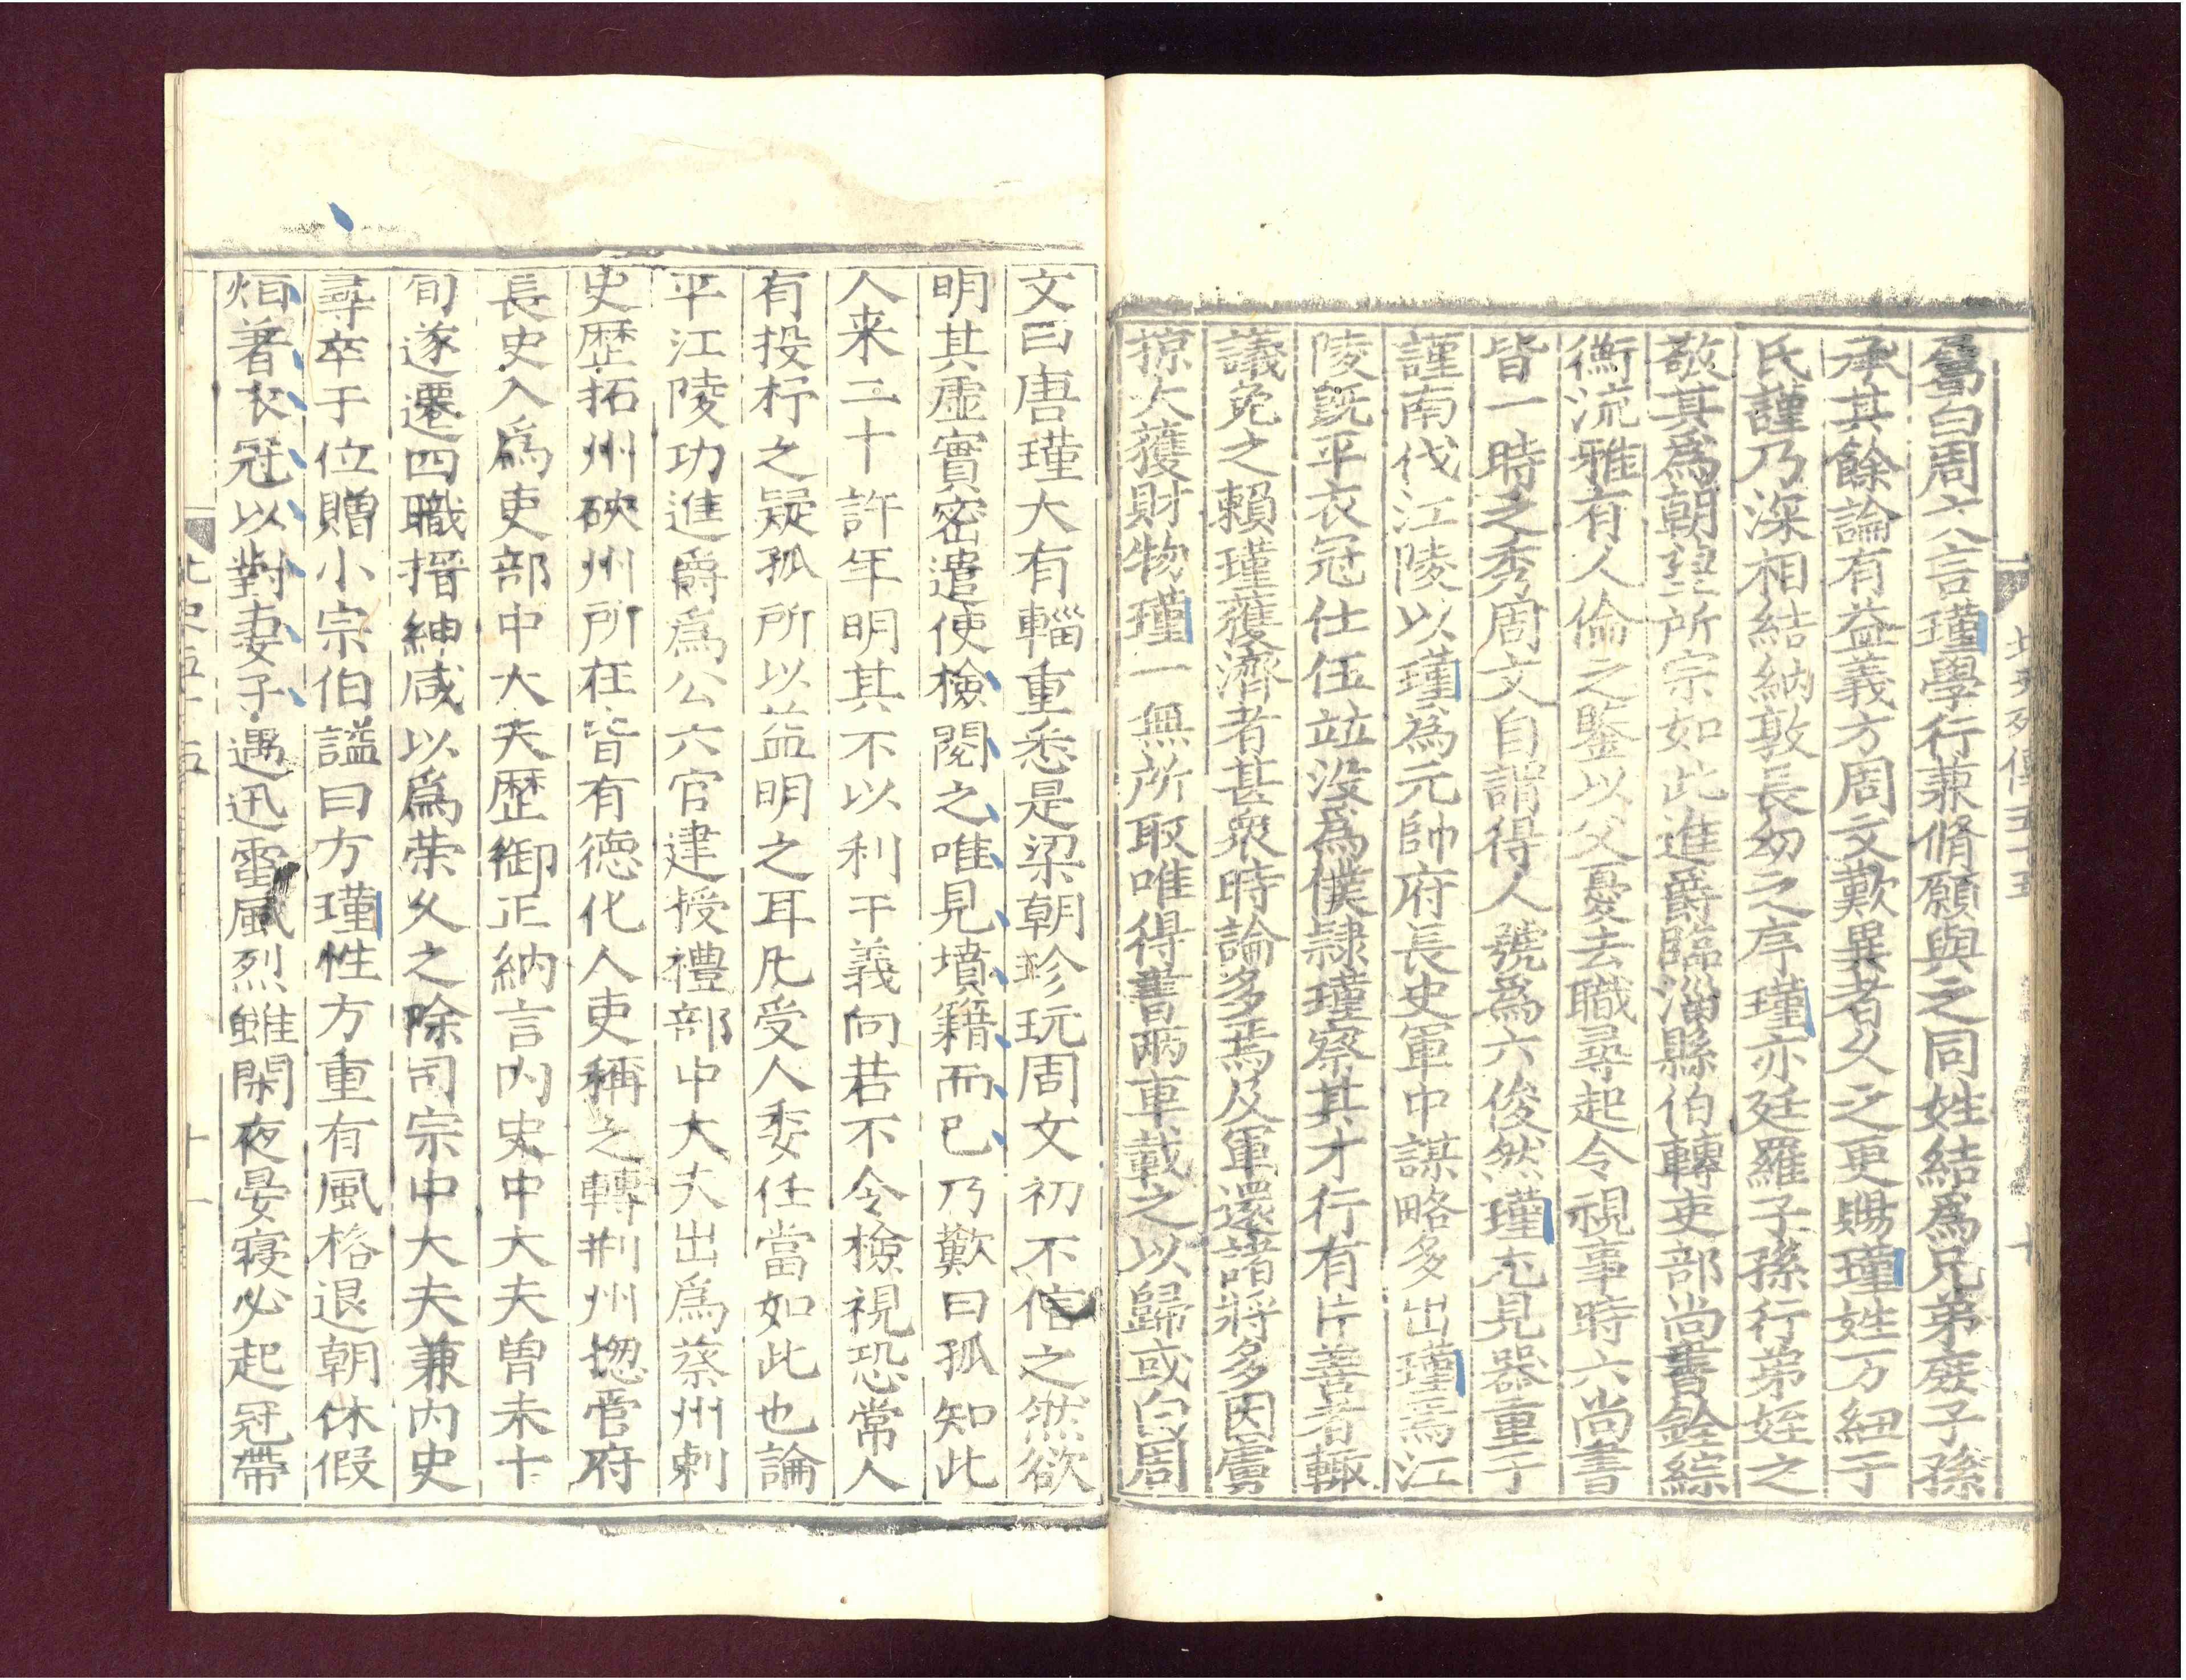 爲白周文言瑾學行兼脩願與之同姓結爲兄弟庶子孫
承其餘論有益義方周文歎異者久之更賜瑾姓万紐于
氏謹乃深相結納敦長幼之序瑾亦廷羅子孫行弟姪之
敬其爲朝望所宗如此進爵臨淄縣伯轉吏部尚書銓綜
衡流雅有人倫之鑒以父憂去職尋起令視事時六尚書
皆一時之秀周文自謂得人號爲六俊然瑾尤見器重于
謹南伐江陵以瑾爲元帥府長史軍中謀略多出瑾焉江
陵旣平衣冠仕伍竝没爲僕隷瑾察其才行有片善者輒
議免之賴瑾獲濟者甚衆時論多焉及軍還諸將多因虜
掠大獲財物瑾一無所取唯得書兩車載之以歸或白周
文曰唐瑾大有輜重悉是梁朝珍玩周文初不信之然欲
明其虛實密遣使檢閱之唯見墳籍而已乃歎曰孤知此
人来二十許年明其不以利干義向若不令檢視恐常人
有投杼之疑孤所以益明之耳凡受人委任當如此也論
平江陵功進爵爲公六官建授禮部中大夫出爲蔡州刺
史歷拓州硤州所在皆有德化人吏稱之轉荆州揔管府
長史入爲吏部中大夫歷御正納言內史中大夫曾未十
旬遂遷四職搢紳咸以爲荣久之除司宗中大夫兼內史
尋卒于位贈小宗伯謚曰方瑾性方重有風格退朝休假
烜著衣冠以對妻子遇迅雷風烈雖閑夜晏寢必起冠帶
北史五十五
十一